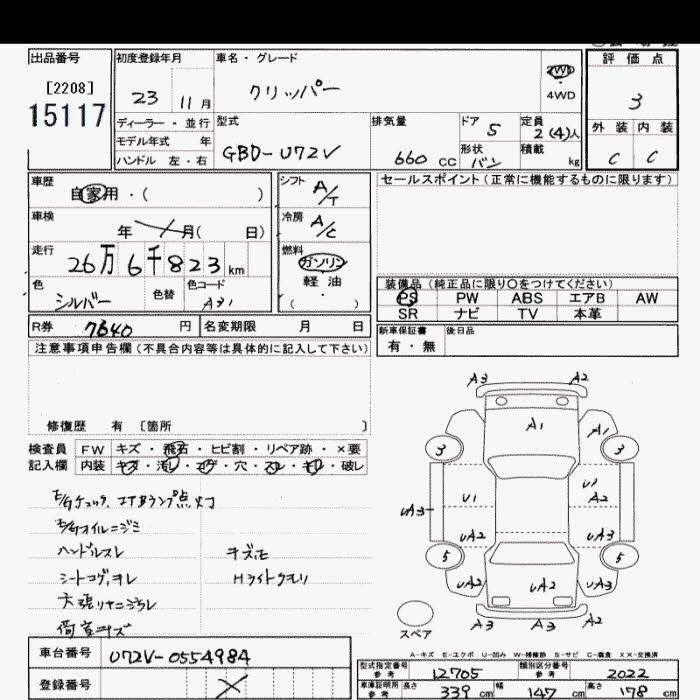 出品番号
[2208]
15117
初度登録年月
23 11月
車名・グレード
クリッパー
2WD
4WD
評価点
3
外装 内装
C C
ディーラー・並行
モデル年式 年
ハンドル 左・右
型式
GBD-U72V
排気量
660 cc
ドア 5
形状 バン
定員
2(4)人
積載
kg
車歴
自家用・( )
車検
年 月( 日)
走行
26万6千823km
色
シルバー
色替
色コード
A31
シフト A/T
冷房 A/C
燃料
ガソリン
軽油
( )
セールスポイント(正常に機能するものに限ります)
装備品(純正品に限り○をつけてください)
PS PW ABS エアB AW
SR ナビ TV 本革
R券 7640 円
名変期限 月 日
新車保証書
有・無
後日品
注意事項申告欄(不具合内容等は具体的に記入して下さい)
修復歴 有 〔箇所 〕
検査員
記入欄
FW キズ・飛石・ヒビ割・リペア跡・×要
内装 キズ・汚レ・コゲ・穴・スレ・キレ・破レ
E/Gチェック、エアBランプ点灯
E/Gオイルニジミ
ハンドルスレ
シートコゲ、キレ
天張リヤニヨゴレ
荷室キズ
キズ
Hライトクモリ
A3 A2
A1 A1
3 3
U1 U1
A2
UA3
UA2 UA3
5 5
UA2 UA2 UA3
A3 A3 A2
スペア
A-キズ E-エクボ U-凹み W-補修跡 S-サビ C-腐食 XX-交換済
車台番号 U72V-0554984
登録番号
型式指定番号
参考
12705
類別区分番号
参考
2022
車庫証明用
参考
長さ 339 cm 幅 147 cm 高さ 178 cm